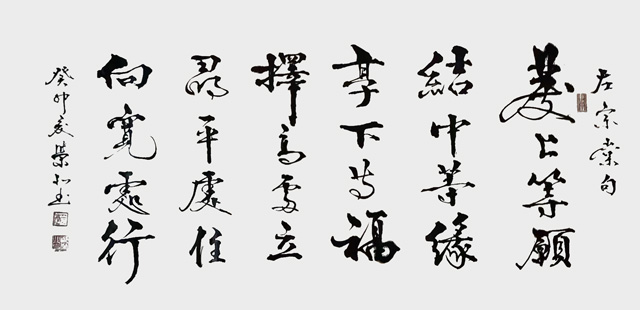 左宗棠句
發上等願
結中等緣
享下等福
擇高處立
尋平處住
向寬處行
癸卯夏榮弘書